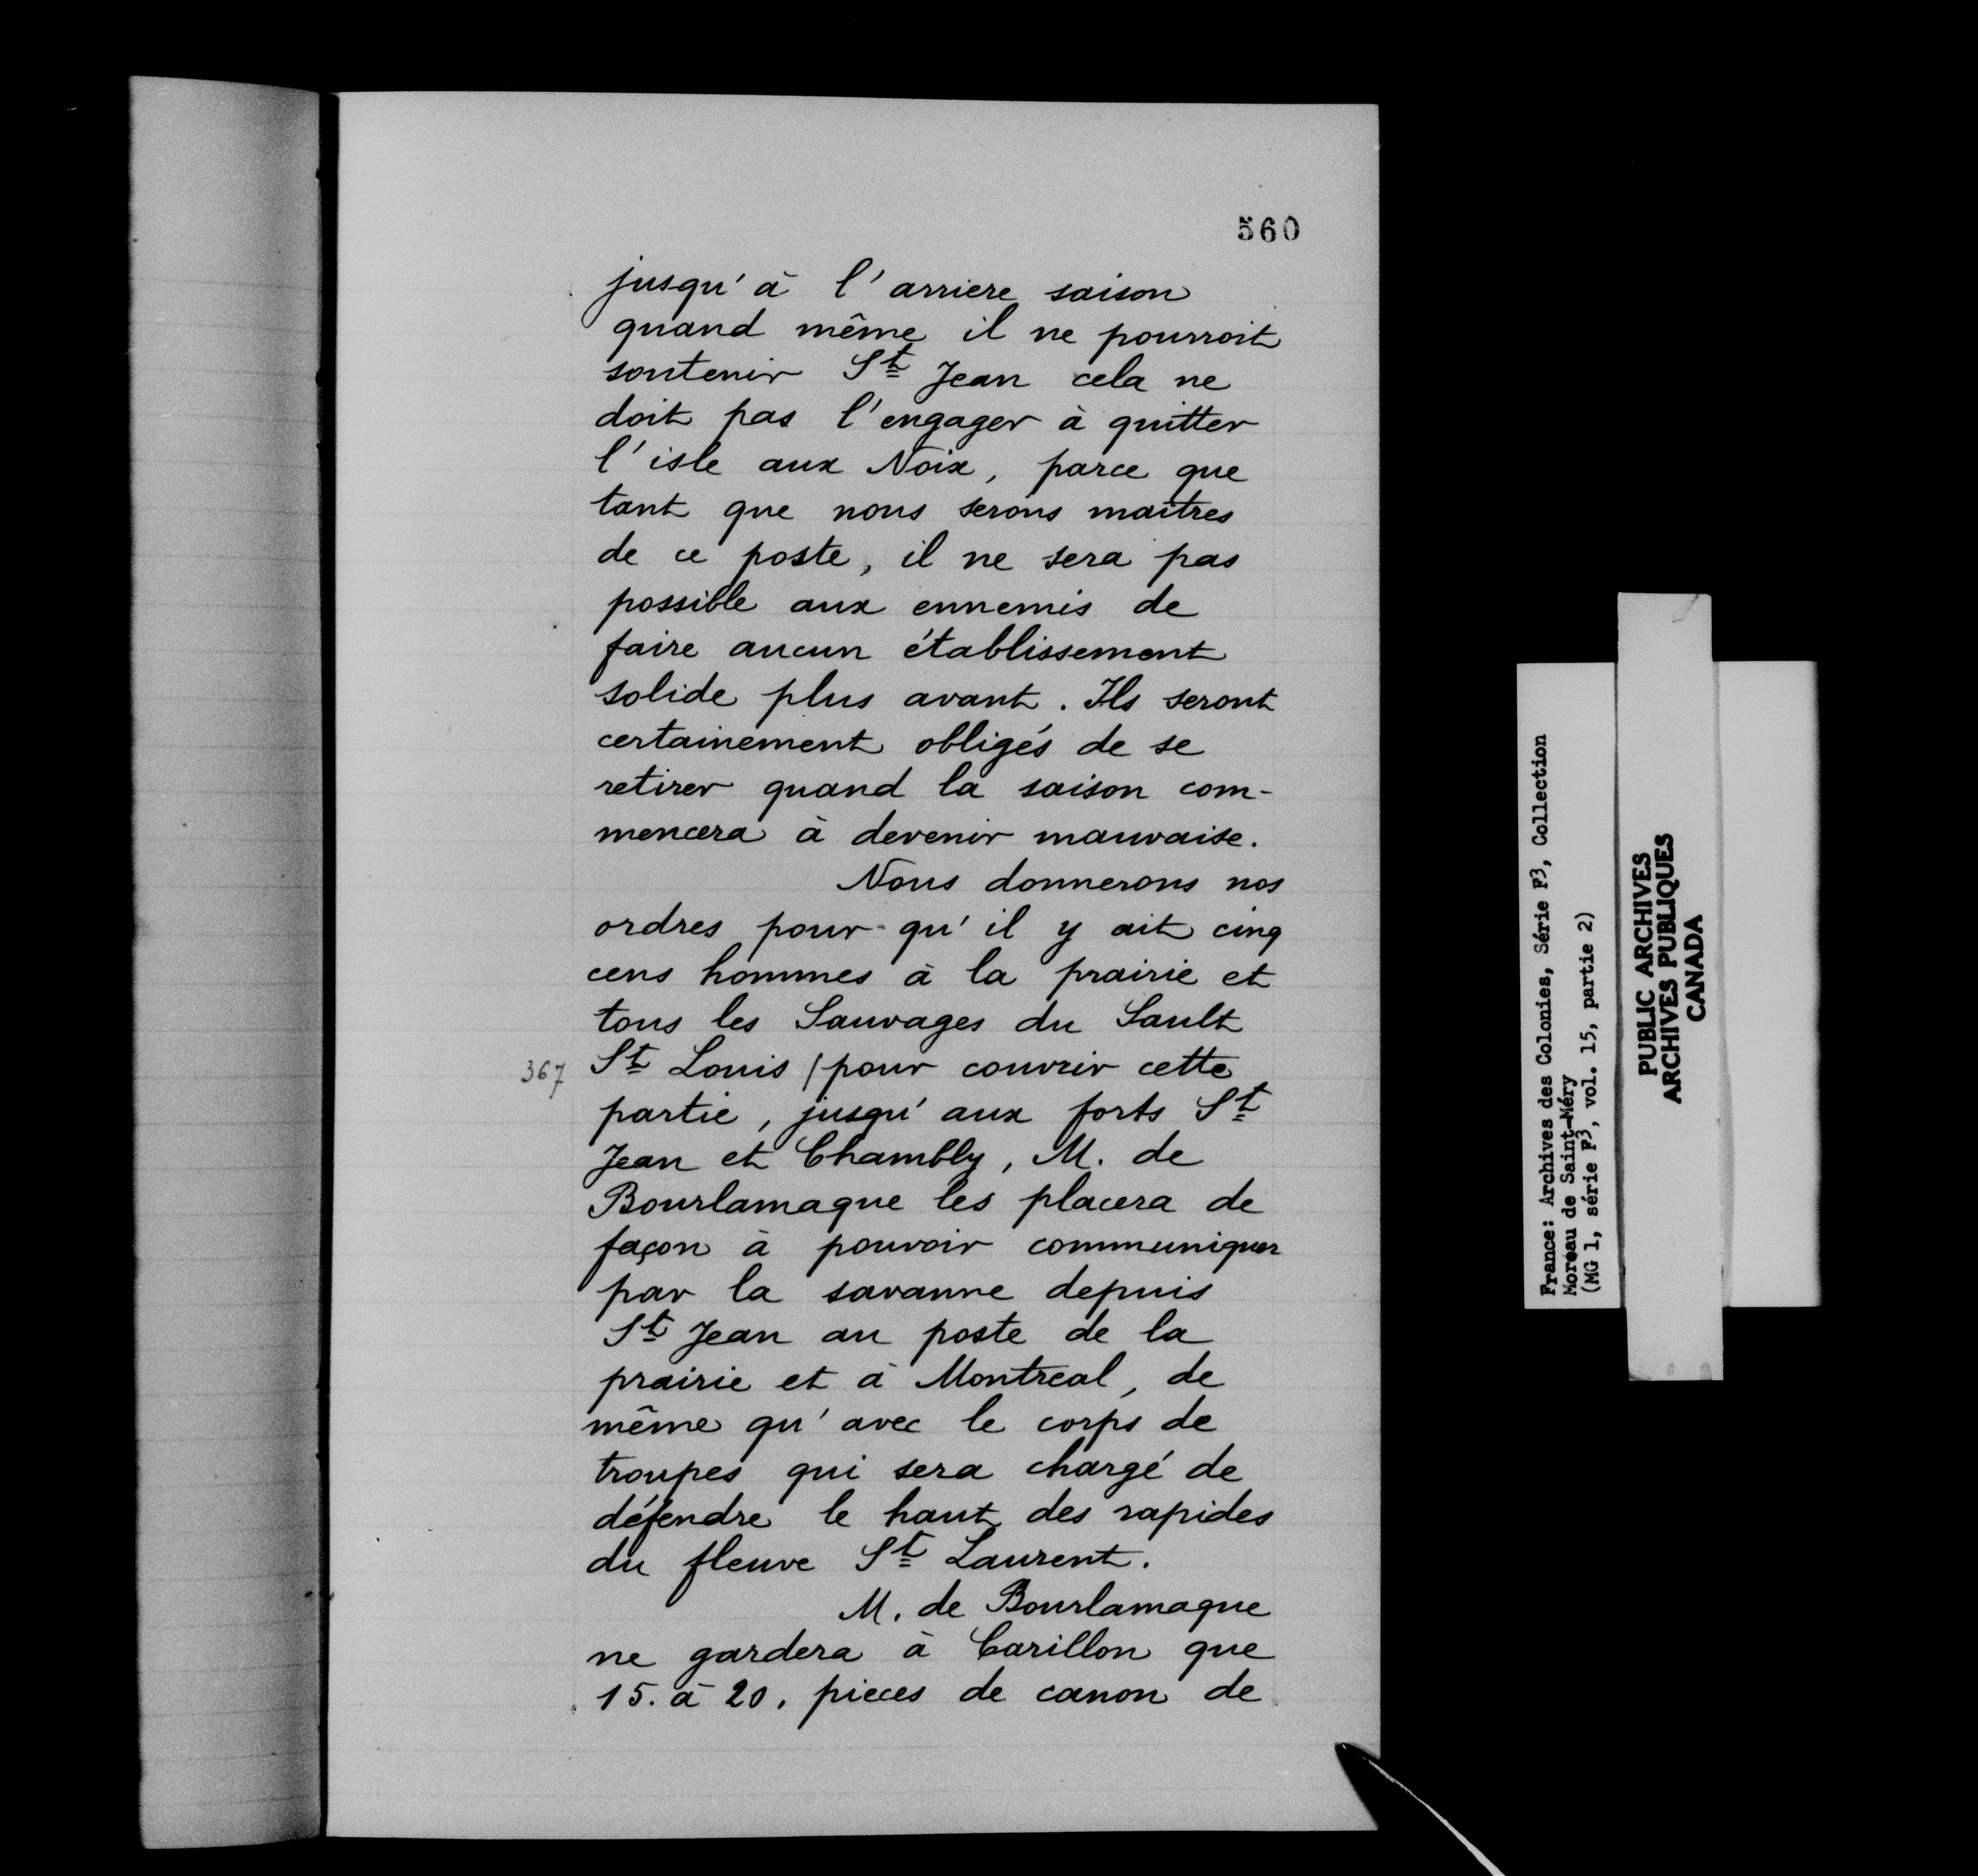 560
jusqu'à l'arriere saison
quand même il ne pourroit
soutenir St Jean cela ne
doit pas l'engager à quitter
l'isle aux Noix, parce que
tant que nous serons maitres
de ce poste, il ne sera pas
possible aux ennemis de
faire aucun établissement
solide plus avant. Ils seront
certainement obligés de se
retirer quand la saison com-
mencera à devenir mauvaise.
Nous donnerons nos
ordres pour qu'il y ait cinq
cens hommes à la prairie et
tous les Sauvages du Sault
367 St Louis / pour couvrir cette
partie, jusqu'aux forts St
Jean et Chambly, M. de
Bourlamaque les placera de
façon à pouvoir communiquer
par la savanne depuis
St Jean au poste de la
prairie et à Montreal, de
même qu'avec le corps de
troupes qui sera chargé de
défendre le haut des rapides
du fleuve St Laurent.
M. de Bourlamaque
ne gardera à Carillon que
15. à 20. pieces de canon de
France: Archives des Colonies, Série F3, Collection
Moreau de Saint-Méry
(MG 1, série F3, vol. 15, partie 2)
PUBLIC ARCHIVES
ARCHIVES PUBLIQUES
CANADA